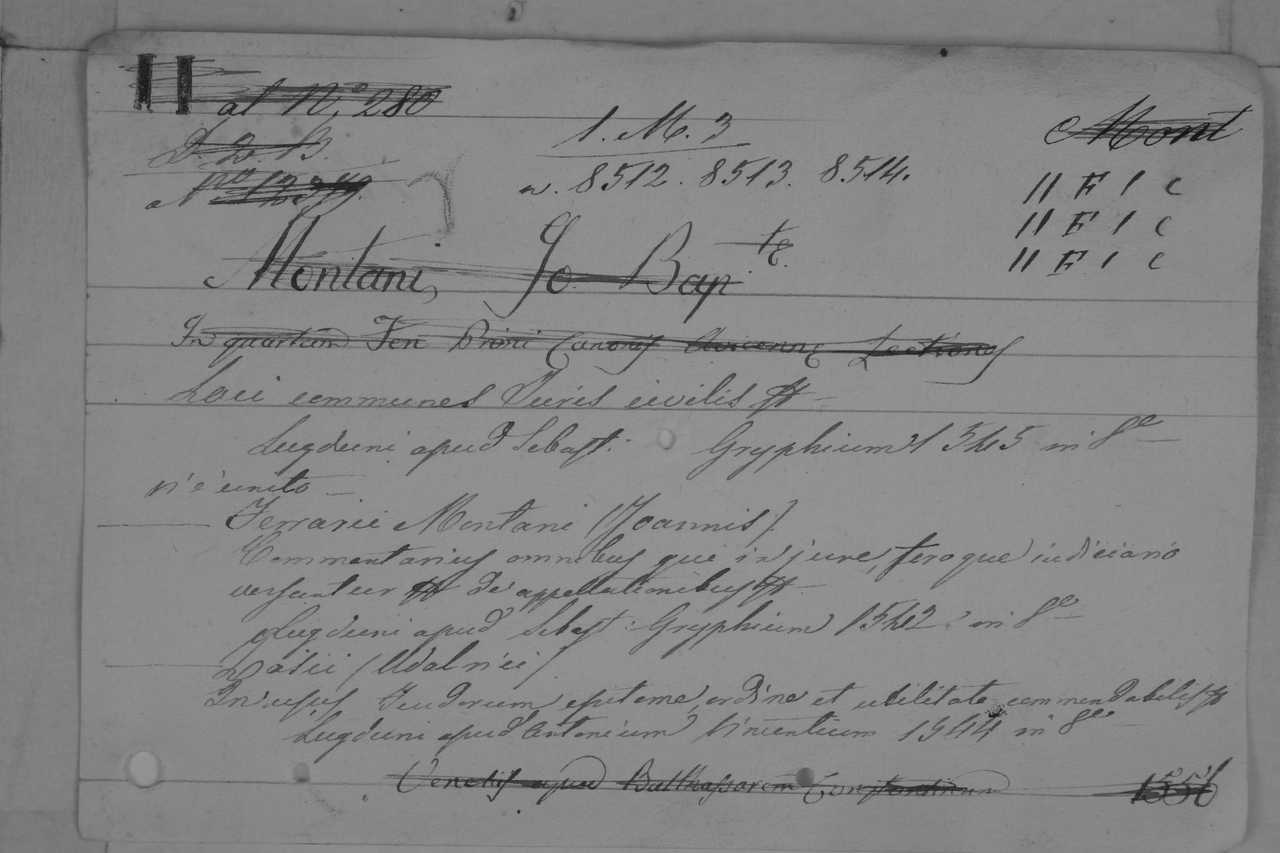 11
al N.° 280
D. D. B.
1. M. 3
Mont
al N.°
n. 8512. 8513. 8514.
11 F 1 C
11 F 1 C
11 F 1 C
Montani, Jo Bap.te
In quartum Fen Primi Canonis Avicennę Lectiones
Loci communes Iuris civilis
Lugduni apud Sebast. Gryphium 1545 in 8°
vi è unito
Ferrarii Montani (Joannis)
Commentarius omnibus que in jure, foroque iudiciario
versantur De appellationibus
Lugduni apud Sebast: Gryphium 1542 in 8°
Zasii (Udalrici)
In usus Feudorum epitome, ordine et utilitate commendabilis
Lugduni apud Antonium Vincentium 1544 in 8°
Venetiis apud Balthassarem Constantinum 1556